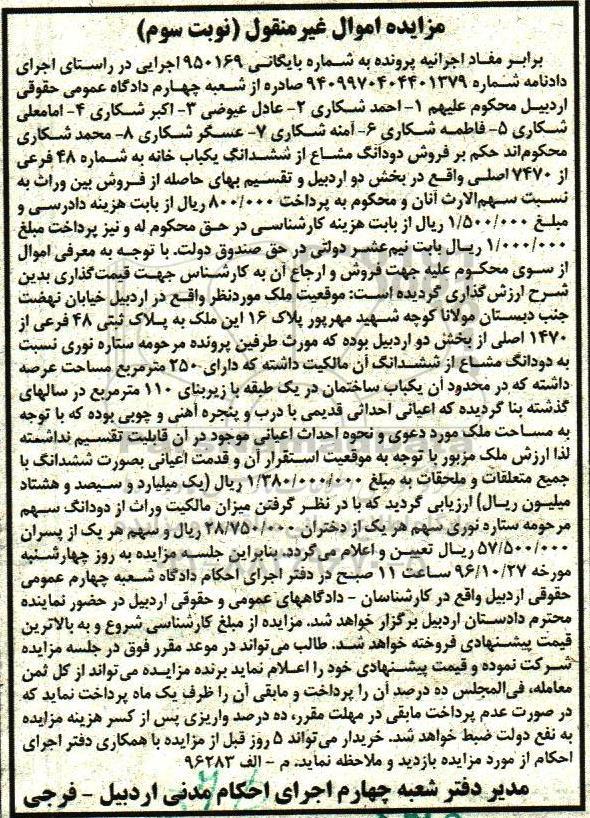 مزایده اموال غیرمنقول (نوبت سوم)
برابر مفاد اجرائیه پرونده به شماره بایگانی ۹۵۰۱۶۹ اجرایی در راستای اجرای
دادنامه شماره ۹۴۰۹۹۷۰۴۰۴۴۰۱۳۷۹ صادره از شعبه چهارم دادگاه عمومی حقوقی
اردبیل محکوم علیهم ۱- احمد شکاری ۲- عادل عیوضی ۳- اکبر شکاری ۴- امامعلی
شکاری ۵- فاطمه شکاری ۶- آمنه شکاری ۷- عسگر شکاری ۸- محمد شکاری
محکوم‌اند حکم بر فروش دودانگ مشاع از ششدانگ یکباب خانه به شماره ۴۸ فرعی
از ۷۴۷۰ اصلی واقع در بخش دو اردبیل و تقسیم بهای حاصله از فروش بین وراث به
نسبت سهم‌الارث آنان و محکوم به پرداخت ۸۰۰/۰۰۰ ریال از بابت هزینه دادرسی و
مبلغ ۱/۵۰۰/۰۰۰ ریال از بابت هزینه کارشناسی در حق محکوم له و نیز پرداخت مبلغ
۱/۰۰۰/۰۰۰ ریال بابت نیم‌عشر دولتی در حق صندوق دولت. با توجه به معرفی اموال
از سوی محکوم علیه جهت فروش و ارجاع آن به کارشناس جهت قیمت‌گذاری بدین
شرح ارزش گذاری گردیده است: موقعیت ملک موردنظر واقع در اردبیل خیابان نهضت
جنب دبستان مولانا کوچه شهید مهرپور پلاک ۱۶ این ملک به پلاک ثبتی ۴۸ فرعی از
۱۴۷۰ اصلی از بخش دو اردبیل بوده که مورث طرفین پرونده مرحومه ستاره نوری نسبت
به دودانگ مشاع از ششدانگ آن مالکیت داشته که دارای ۲۵۰ مترمربع مساحت عرصه
داشته که در محدود آن یکباب ساختمان در یک طبقه با زیربنای ۱۱۰ مترمربع در سالهای
گذشته بنا گردیده که اعیانی احداثی قدیمی با درب و پنجره آهنی و چوبی بوده که با توجه
به مساحت ملک مورد دعوی و نحوه احداث اعیانی موجود در آن قابلیت تقسیم نداشته
لذا ارزش ملک مزبور با توجه به موقعیت استقرار آن و قدمت اعیانی بصورت ششدانگ با
جمیع متعلقات و ملحقات به مبلغ ۱/۳۸۰/۰۰۰/۰۰۰ ریال (یک میلیارد و سیصد و هشتاد
میلیون ریال) ارزیابی گردید که با در نظر گرفتن میزان مالکیت وراث از دودانگ سهم
مرحومه ستاره نوری سهم هر یک از دختران ۲۸/۷۵۰/۰۰۰ ریال و سهم هر یک از پسران
۵۷/۵۰۰/۰۰۰ ریال تعیین و اعلام می‌گردد. بنابراین جلسه مزایده به روز چهارشنبه
مورخه ۹۶/۱۰/۲۷ ساعت ۱۱ صبح در دفتر اجرای احکام دادگاه شعبه چهارم عمومی
حقوقی اردبیل واقع در کارشناسان - دادگاههای عمومی و حقوقی اردبیل در حضور نماینده
محترم دادستان اردبیل برگزار خواهد شد. مزایده از مبلغ کارشناسی شروع و به بالاترین
قیمت پیشنهادی فروخته خواهد شد. طالب می‌تواند در موعد مقرر فوق در جلسه مزایده
شرکت نموده و قیمت پیشنهادی خود را اعلام نماید برنده مزایده می‌تواند از کل ثمن
معامله، فی‌المجلس ده درصد آن را پرداخت و مابقی آن را ظرف یک ماه پرداخت نماید که
در صورت عدم پرداخت مابقی در مهلت مقرر، ده درصد واریزی پس از کسر هزینه مزایده
به نفع دولت ضبط خواهد شد. خریدار می‌تواند ۵ روز قبل از مزایده با همکاری دفتر اجرای
احکام از مورد مزایده بازدید و ملاحظه نماید. م - الف ۹۶۲۸۳
مدیر دفتر شعبه چهارم اجرای احکام مدنی اردبیل - فرجی